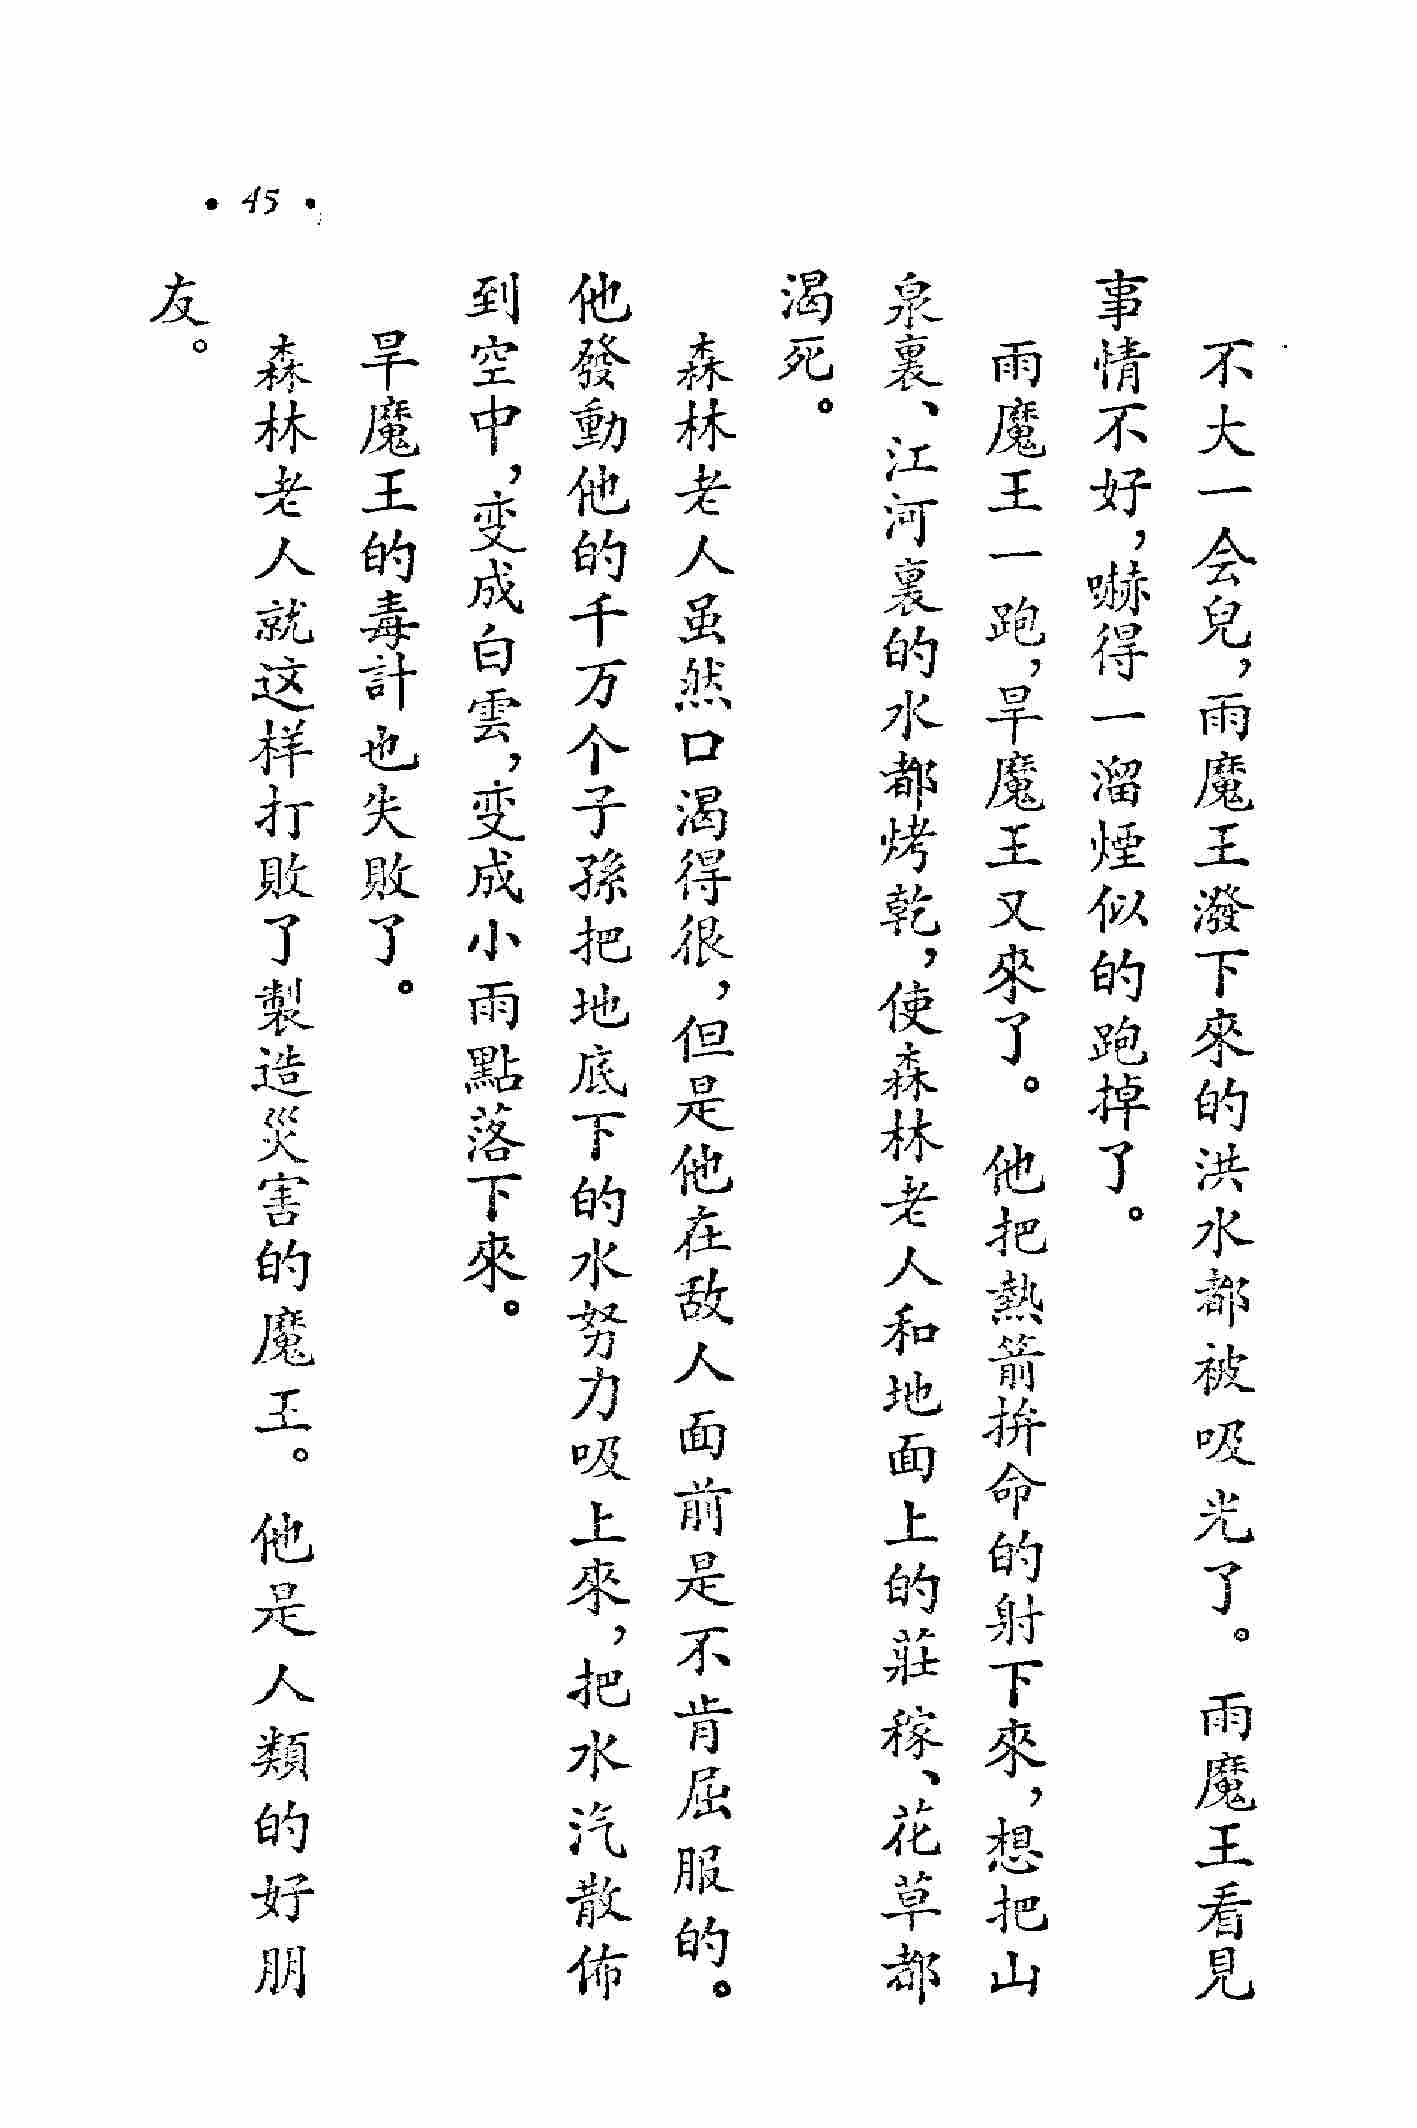 不大一会兒，雨魔王潑下來的洪水都被吸光了。雨魔王看見
事情不好，嚇得一溜煙似的跑掉了。
雨魔王一跑，旱魔王又來了。他把熱箭拚命的射下來，想把山
泉裏、江河裏的水都烤乾，使森林老人和地面上的莊稼、花草都
渴死。
森林老人虽然口渴得很，但是他在敌人面前是不肯屈服的。
他發動他的千万个子孫把地底下的水努力吸上來，把水汽散佈
到空中，变成白雲，变成小雨點落下來。
旱魔王的毒計也失敗了。
森林老人就这样打敗了製造災害的魔王。他是人類的好朋
友。
• 45 •